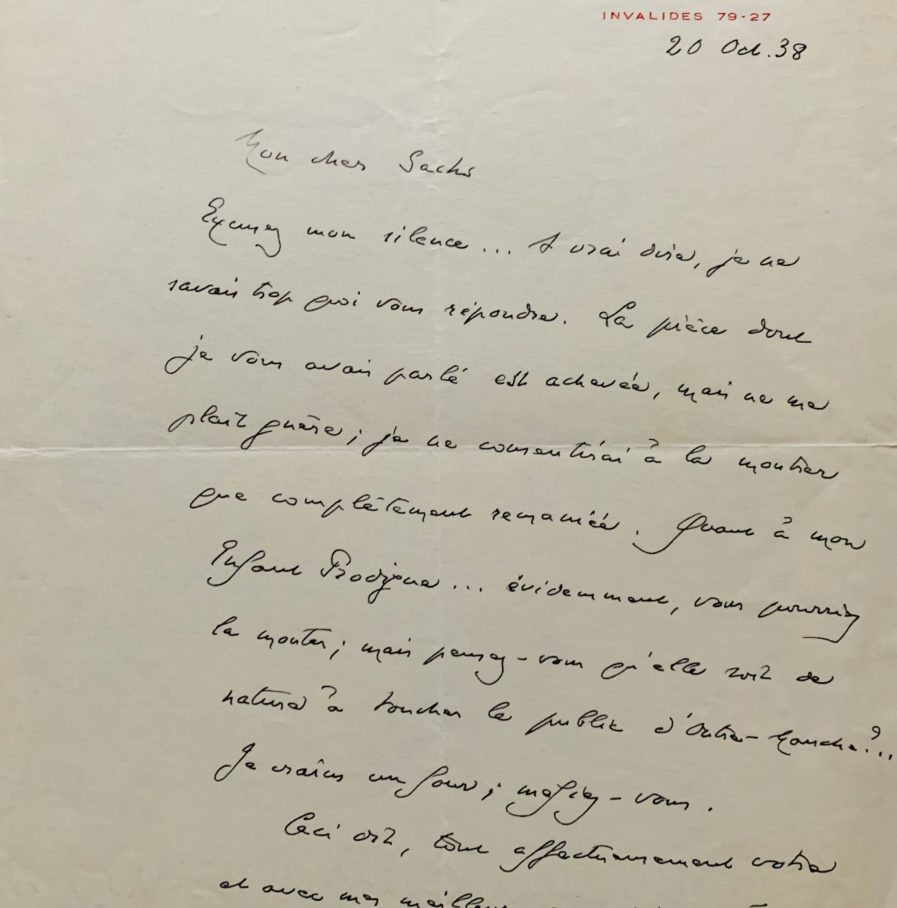 INVALIDES 79-27
20 Oct. 38
Mon cher Sachs
Excusez mon silence... A vrai dire, je ne
savais trop quoi vous répondre. La pièce dont
je vous avais parlé est achevée, mais ne me
plait guère ; je ne consentirai à la montrer
que complètement remaniée. Quant à mon
Enfant Prodigue... évidemment, vous pourriez
la monter ; mais pensez-vous qu'elle soit de
nature à toucher le public d'Outre-Manche ?...
Je crains un four ; méfiez-vous.
Ceci dit, tout affectueusement votre
et avec mes